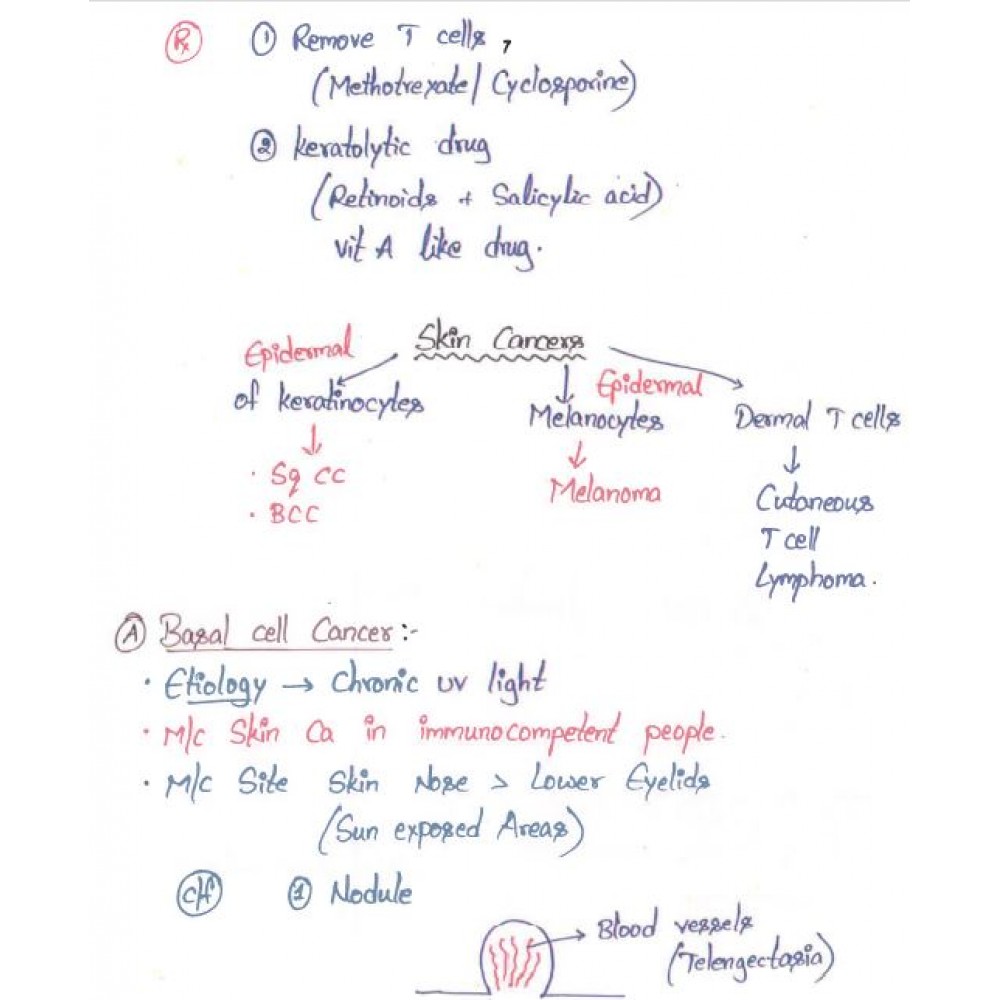 Rx ① Remove T cells,
(Methotrexate/ Cyclosporine)
② keratolytic drug
(Retinoids + Salicylic acid)
vit A like drug.
Skin Cancers
Epidermal
of keratinocytes
↓
· Sq CC
· BCC
↓ Epidermal
Melanocytes
↓
Melanoma
Dermal T cells
↓
Cutaneous
T cell
Lymphoma.
Ⓐ Basal cell Cancer:-
· Etiology → Chronic UV light
· M/c Skin Ca in immunocompetent people.
· M/c Site Skin Nose > Lower Eyelids
(Sun exposed Areas)
c/f ① Nodule
→ Blood vessels
(Telengectasia)